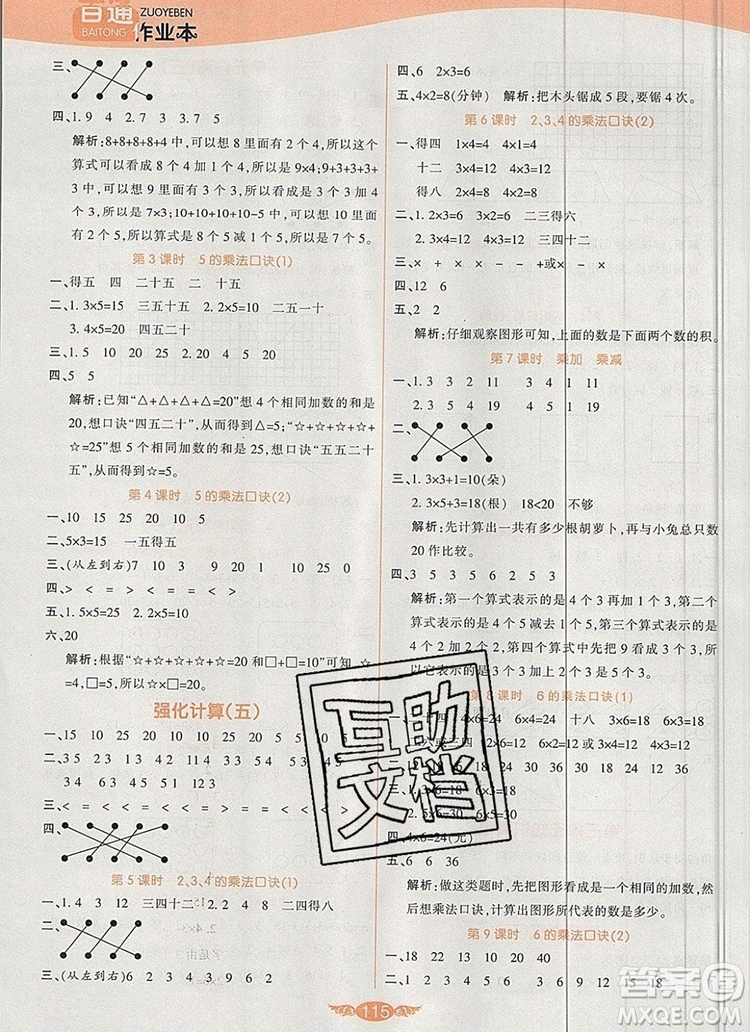 百通
BAITONG
ZUOYEBEN
作业本
三、
四、1. 9 4 2. 7 3 3. 7 5
解析:8+8+8+8+4中,可以看成8里面有2个4,所以这个算式可以看成9个4相加,所以是9×4;9+3+3+3+3中,可以想9里面有3个3,所以可以看成7个3相加,所以是7×3;10+10+10+10-10中,5个2里面有2个5,所以算式是8个5减1个5,所以是7×5。
第3课时 5的乘法口诀(1)
一、得五 四 二十五 二 十五
二、1. 3×5=15 三五十五 2. 2×5=10 二五一十
3. 4×5=20 四五二十
三、
四、5 5
解析:已知“△+△+△+△=20”想4个相同加数的和是
20,想口诀“四五二十”,从而得到△=5。已知“☆+☆+☆+
☆+☆=25”想5个相同加数的和是25,想口诀“五五二十
五”,从而得到☆=5。
第4课时 5的乘法口诀(2)
一、10 15 25 20 10 5
二、5×3=15 一五得五
三、(从左到右)7 10 3 9 20 1 10 25 0
四、> < = > < =
五、1. 5×5=25 2. 3×5=15
六、20
解析:根据“☆+☆+☆+☆+☆=20和□+□=☆”可知,☆
=4,□=2,所以☆×□=20。
强化计算(五)
一、15 10 25 20 5 10 15 20 10
二、13 23 52 35 4 2 11 4 53 5 4
1 2 3 4 3 5 3 4 5 1 2 3
三、< > < = < > < > < < = <
四、
第5课时 2、3、4的乘法口诀(1)
一、1. 9 4 12 三四十二 2. 2 4 8 二四得八
二、
三、(从左到右)1 2 3 4 3 9 6 2
四、6 2×3=6
五、4×2=8(分钟) 解析:把木头锯成5段,要锯4次。
第6课时 2、3、4的乘法口诀(2)
一、得四 1×4=4 4×1=4
十二 3×4=12 4×3=12
得八 2×4=8 4×2=8
二、1. 2×3=6 3×2=6 二三得六
2. 3×4=12 4×3=12 三四十二
三、× × × × - - +或× - ×
四、12 6
五、2 2
解析:仔细观察图形可知,上面的数是下面两个数的积。
第7课时 乘加 乘减
一、1. 3 3 2 11 3 4 3 11
2. 3 5 4 19 4 5 1 19
二、
三、1. 3×3+1=10(朵)
2. 3×5+3=18(根) 18<20 不够
解析:先计算出一共有多少根胡萝卜,再与小兔总只数
20作比较。
四、3 5 3 5 6 2 5 3
解析:第一个算式表示的是4个3再加1个3,第二个
算式表示的是4个5减去1个5,第三个算式表示的是
4个6再加2个6,第四个算式中,可以把9看成3个3,所
以它表示的是2个3加3个3,所以是5个3。
第8课时 6的乘法口诀(1)
四 4×6=24 6×4=24 十八 3×6=18 6×3=18
18 24 30 12 36
3×6=18
四、4×6=24(元)
五、6 6 36
解析:做这类题时,只要看成是一个相同的加数,然
后想乘法口诀,计算出图形所代表的数是多少。
第9课时 6的乘法口诀(2)
一、18 22 13 20 30 40
二、1 2 3 4 5 6 3 6 9 12 15 18
互助
文档
答案圈
MXQE.COM
115